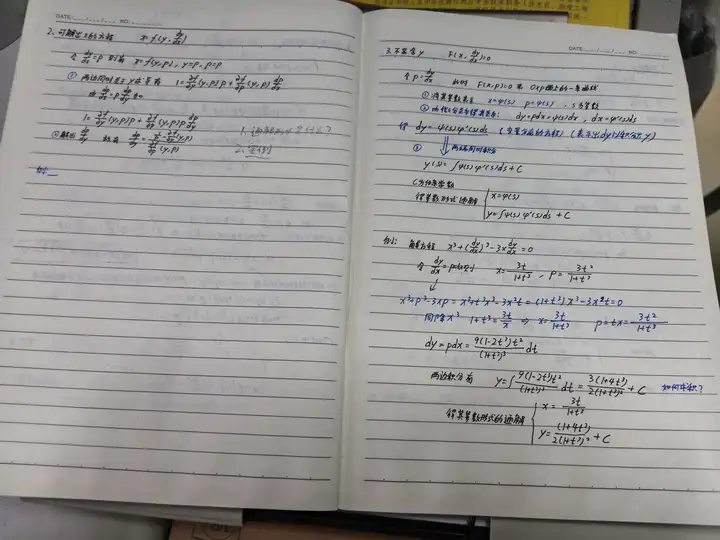 DATE: NO.
2、可解出x的方程 x=f(y, dy/dx)
令 dy/dx=p 则有 x=f(y,p), y=y, p=p
① 两边同时关于y求导有 1=∂f/∂y(y,p)p+∂f/∂p(y,p)dp/dx
由 dp/dx=p dp/dy 知
1=∂f/∂y(y,p)p+∂f/∂p(y,p)p dp/dy
② 解出 dp/dy 就有
例:
DATE: NO.
3.不显含y F(x, dy/dx)=0
令 p=dy/dx 此时 F(x,p)=0 为 Oxp 面上的一条曲线
① 将其参数表示 x=φ(s) p=ψ(s), s为参数
dy=pdx=ψ(s)dx, dx=φ'(s)ds
得 dy=ψ(s)φ'(s)ds (变量分离的方程) (表示出dy以得到y)
② 两端同时积分
y(s)=∫ψ(s)φ'(s)ds+C
C为任意常数
得参数形式通解 { x=φ(s)
y=∫ψ(s)φ'(s)ds+C
例1: 解方程 x³+(dy/dx)³-3x dy/dx=0
令 dy/dx=p=tx 则 x=3t/(1+t³), p=3t²/(1+t³)
x³+p³-3xp=x³+t³x³-3x²t=(1+t³)x³-3x²t=0
同除x³ 1+t³=3t/x ⇒ x=3t/(1+t³) p=tx=3t²/(1+t³)
dy=pdx=9(1-2t³)t²/(1+t³)³ dt
两边积分有 y=∫9(1-2t³)t²/(1+t³)³ dt=3(1+4t³)/2(1+t³)²+C 如何求积?
得其参数形式的通解 { x=3t/(1+t³)
y=(1+4t³)/2(1+t³)²+C